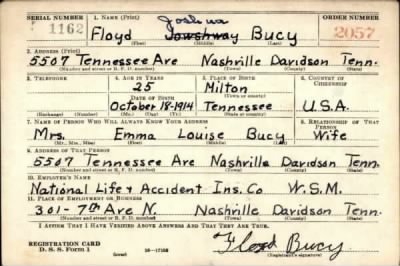 SERIAL NUMBER 1. NAME (Print) ORDER NUMBER
1162 Joshua 2057
Floyd Jowshway Bucy
(First) (Middle) (Last)
2. ADDRESS (Print)
5507 Tennessee Ave Nashville Davidson Tenn.
(Number and street or R. F. D. number) (Town) (County) (State)
3. TELEPHONE 4. AGE IN YEARS 5. PLACE OF BIRTH 6. COUNTRY OF CITIZENSHIP
25 Milton
DATE OF BIRTH (Town or county)
October 18-1914 Tennessee U.S.A.
(Exchange) (Number) (Mo.) (Day) (Yr.) (State or country)
7. NAME OF PERSON WHO WILL ALWAYS KNOW YOUR ADDRESS 8. RELATIONSHIP OF THAT PERSON
Mrs. Emma Louise Bucy Wife
(Mr., Mrs., Miss) (First) (Middle) (Last)
9. ADDRESS OF THAT PERSON
5507 Tennessee Ave Nashville Davidson Tenn.
(Number and street or R. F. D. number) (Town) (County) (State)
10. EMPLOYER'S NAME
National Life & Accident Ins. Co W.S.M.
11. PLACE OF EMPLOYMENT OR BUSINESS
301-7th Ave N. Nashville Davidson Tenn.
(Number and street or R. F. D. number) (Town) (County) (State)
I AFFIRM THAT I HAVE VERIFIED ABOVE ANSWERS AND THAT THEY ARE TRUE.
REGISTRATION CARD Floyd Bucy
D. S. S. Form 1 (over) (Registrant's signature)